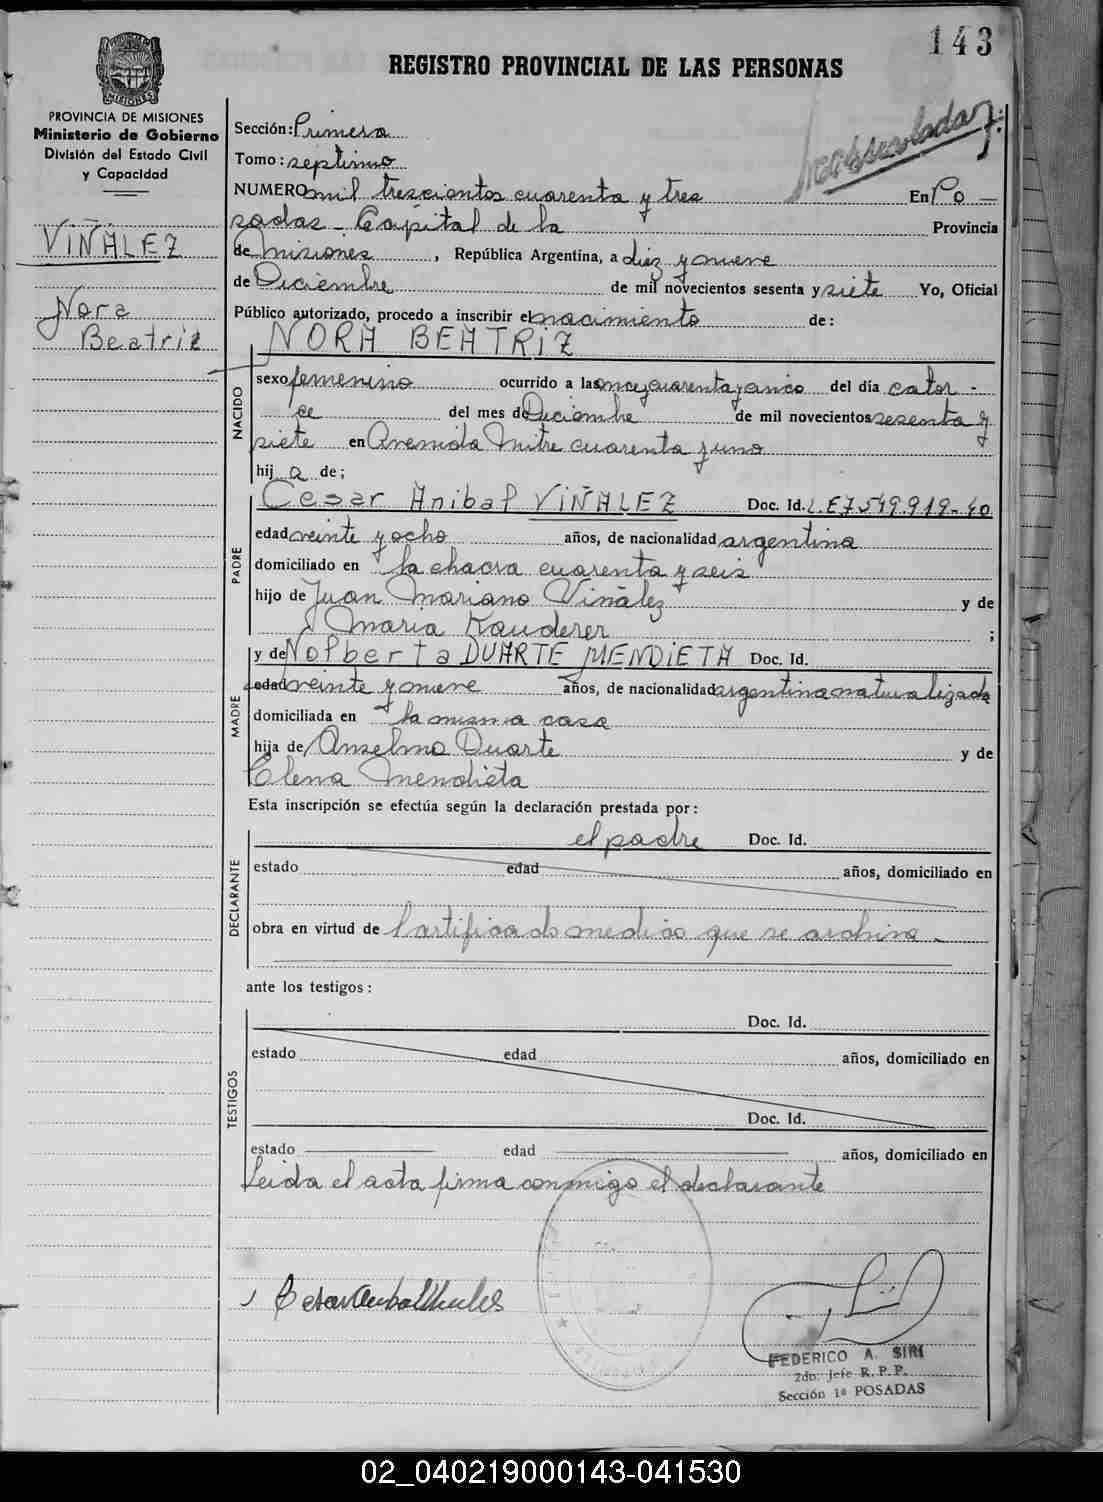 143
REGISTRO PROVINCIAL DE LAS PERSONAS
PROVINCIA DE MISIONES
Ministerio de Gobierno
División del Estado Civil
y Capacidad
VIÑALEZ
Nora
Beatriz
Sección: Primera
Tomo: septimo
NUMERO mil trescientos cuarenta y tres En Po
sadas - Capital de la Provincia
de Misiones, República Argentina, a diez y nueve
de Diciembre de mil novecientos sesenta y siete Yo, Oficial
Público autorizado, procedo a inscribir el nacimiento de:
NORA BEATRIZ
NACIDO
sexo femenino ocurrido a las once y cuarenta y cinco del día cator-
ce del mes de Diciembre de mil novecientos sesenta y
siete en Avenida Mitre cuarenta y uno
hij a de;
PADRE
Cesar Anibal VIÑALEZ Doc. Id. L.E 7.549.919-40
edad veinte y ocho años, de nacionalidad argentina
domiciliado en la chacra cuarenta y seis
hijo de Juan Mariano Viñalez y de
Maria Kauderer ;
MADRE
y de Nolberta DUARTE MENDIETA Doc. Id.
edad veinte y nueve años, de nacionalidad argentina naturalizada
domiciliada en la misma casa
hija de Anselmo Duarte y de
Elena Mendieta
Esta inscripción se efectúa según la declaración prestada por:
DECLARANTE
el padre Doc. Id.
estado edad años, domiciliado en
obra en virtud de Certificado medico que se archiva -
ante los testigos:
TESTIGOS
Doc. Id.
estado edad años, domiciliado en
Doc. Id.
estado edad años, domiciliado en
Leida el acta firma conmigo el declarante
FEDERICO A. SIRI
2do. Jefe R. P. P.
Sección 1ª POSADAS
02_040219000143-041530